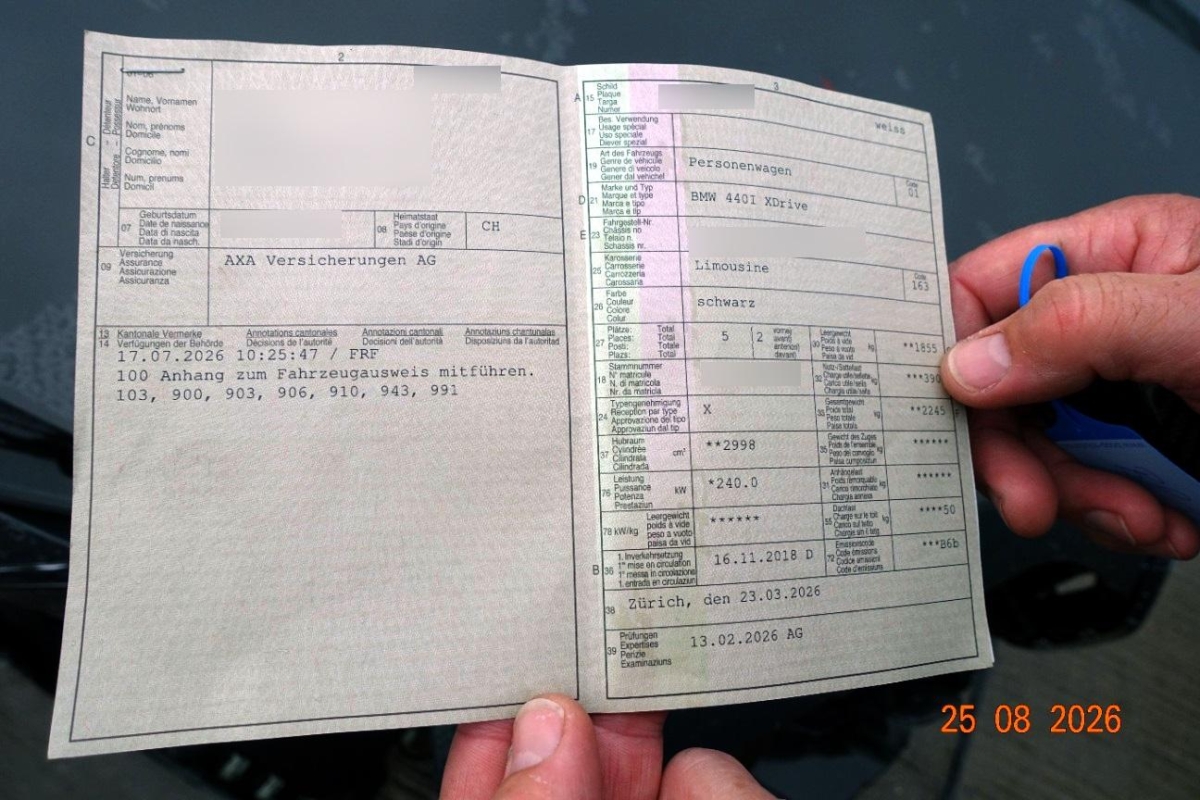 2
01-06
Halter
Détenteur
Detentore
Possessur
C
Name, Vornamen
Wohnort
Nom, prénoms
Domicile
Cognome, nomi
Domicilio
Num, prenums
Domicil
07
Geburtsdatum
Date de naissance
Data di nascita
Data da nasch.
08
Heimatstaat
Pays d'origine
Paese d'origine
Stadi d'origin
CH
09
Versicherung
Assurance
Assicurazione
Assicuranza
AXA Versicherungen AG
13 Kantonale Vermerke Annotations cantonales Annotazioni cantonali Annotaziuns chantunalas
14 Verfügungen der Behörde Décisions de l'autorité Decisioni dell'autorità Disposiziuns da l'autoritad
17.07.2026 10:25:47 / FRF
100 Anhang zum Fahrzeugausweis mitführen.
103, 900, 903, 906, 910, 943, 991
3
A 15
Schild
Plaque
Targa
Numer
weiss
17
Bes. Verwendung
Usage spécial
Uso speciale
Diever spezial
19
Art des Fahrzeugs
Genre de véhicule
Genere di veicolo
Gener dal vehichel
Personenwagen
Code
01
D 21
Marke und Typ
Marque et type
Marca e tipo
Marca e tip
BMW 440I XDrive
E 23
Fahrgestell-Nr.
Châssis no.
Telaio n.
Schassis nr.
25
Karosserie
Carrosserie
Carrozzeria
Carossaria
Limousine
Code
163
26
Farbe
Couleur
Colore
Colur
schwarz
27
Plätze: Total
Places: Total
Posti: Totale
Plazs: Total
5
2
vorne
avant
anteriori
davant
30
Leergewicht
Poids à vide
Peso a vuoto
Paisa da vid
kg
**1855
18
Stammnummer
N° matricule
N. di matricola
Nr. da matricla
32
Nutz-/Sattellast
Charge utile/sellette
Carico utile/sella
Chargia utila/sella
kg
***390
24
Typengenehmigung
Réception par type
Approvazione del tipo
Approvaziun dal tip
X
33
Gesamtgewicht
Poids total
Peso totale
Paisa totala
kg
**2245
37
Hubraum
Cylindrée
Cilindrata
Cilindrada
cm³
**2998
35
Gewicht des Zuges
Poids de l'ensemble
Peso del convoglio
Paisa cumposiziun
kg
******
76
Leistung
Puissance
Potenza
Prestaziun
kW
*240.0
31
Anhängelast
Poids remorquable
Carico rimorchiato
Chargia annexa
kg
******
78 kW/kg
Leergewicht
poids à vide
peso a vuoto
paisa da vid
******
55
Dachlast
Charge sur le toit
Carico sul tetto
Chargia sin il tetg
kg
****50
B 36
1. Inverkehrsetzung
1re mise en circulation
1a messa in circolazione
1. entrada en circulaziun
16.11.2018 D
72
Emissionscode
Code émissions
Codice emissioni
Code d'emissiuns
***B6b
38
Zürich, den 23.03.2026
39
Prüfungen
Expertises
Perizie
Examinaziuns
13.02.2026 AG
25 08 2026